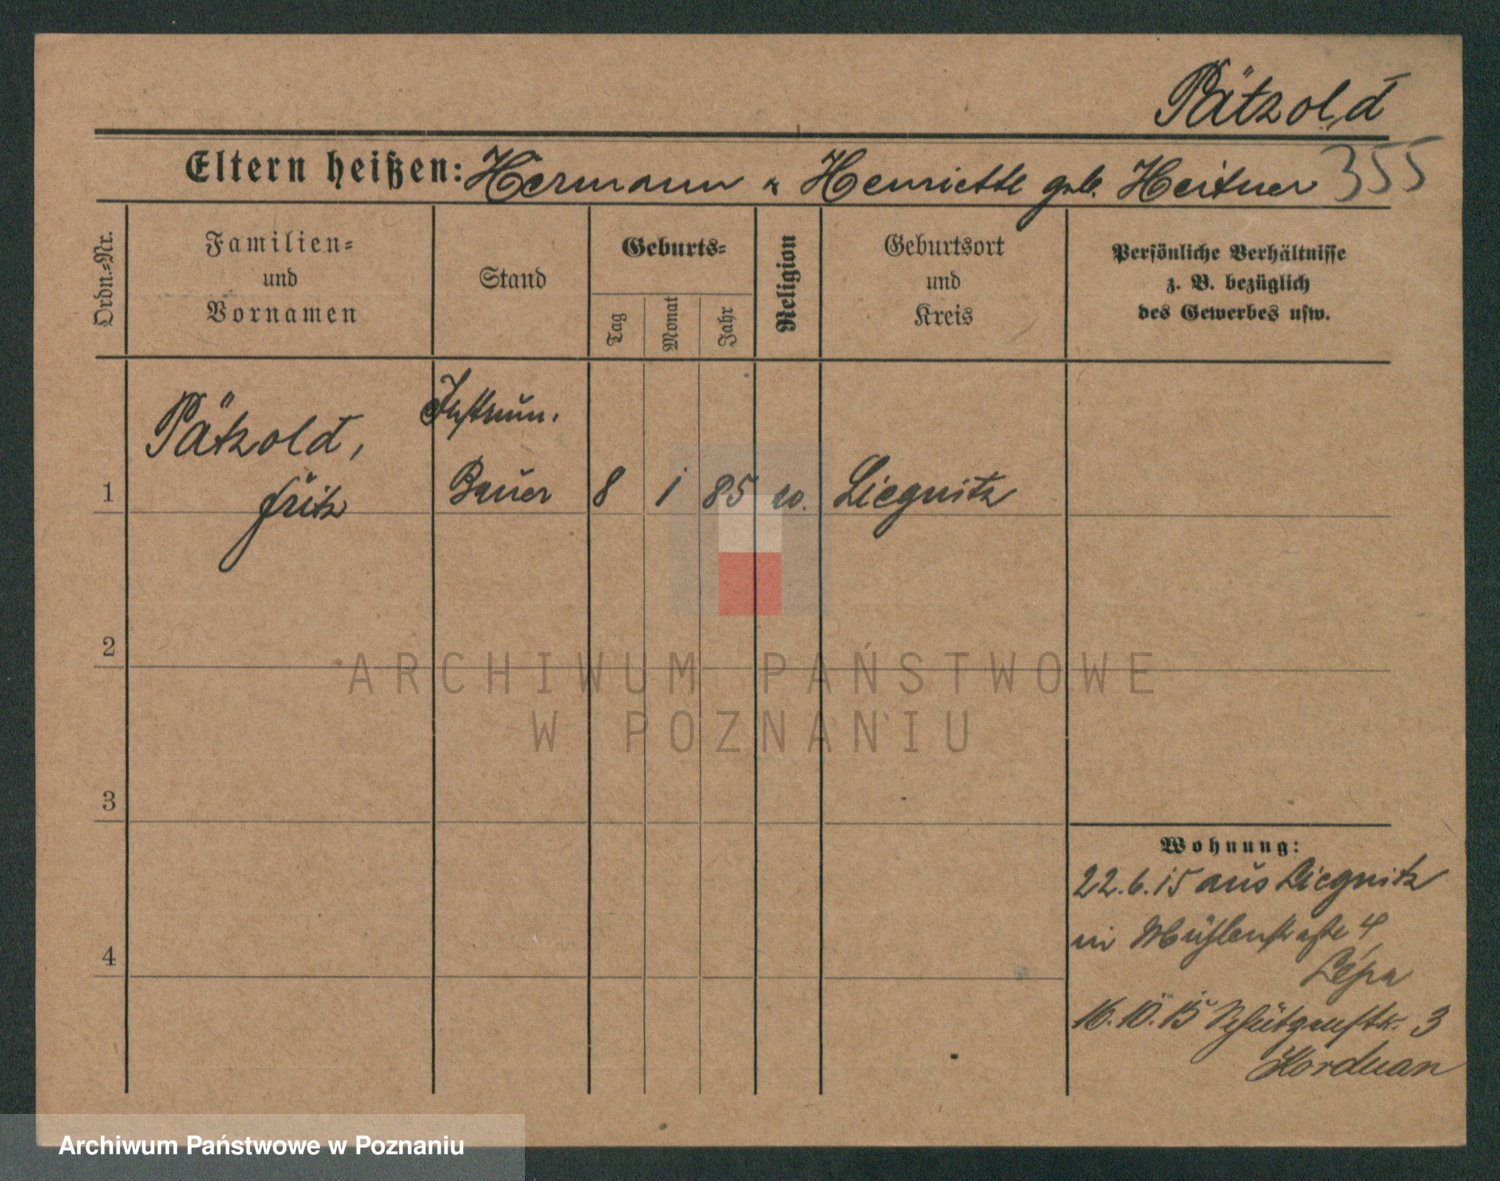 Pätzold
355
Eltern heißen: Hermann u Henriette geb. Heitner
Ordn.-Nr.
Familien-
und
Vornamen
Stand
Geburts-
Tag
Monat
Jahr
Religion
Geburtsort
und
Kreis
Persönliche Verhältnisse
z. B. bezüglich
des Gewerbes usw.
Pätzold,
Fritz
Instrum.
Bauer
1
8
1
85
ev.
Liegnitz
2
3
4
Wohnung:
22.6.15 aus Liegnitz
in Mühlenstraße 4
16.10.15 Schützenstr. 3
Horduan
ARCHIWUM PAŃSTWOWE
W POZNANIU
Archiwum Państwowe w Poznaniu